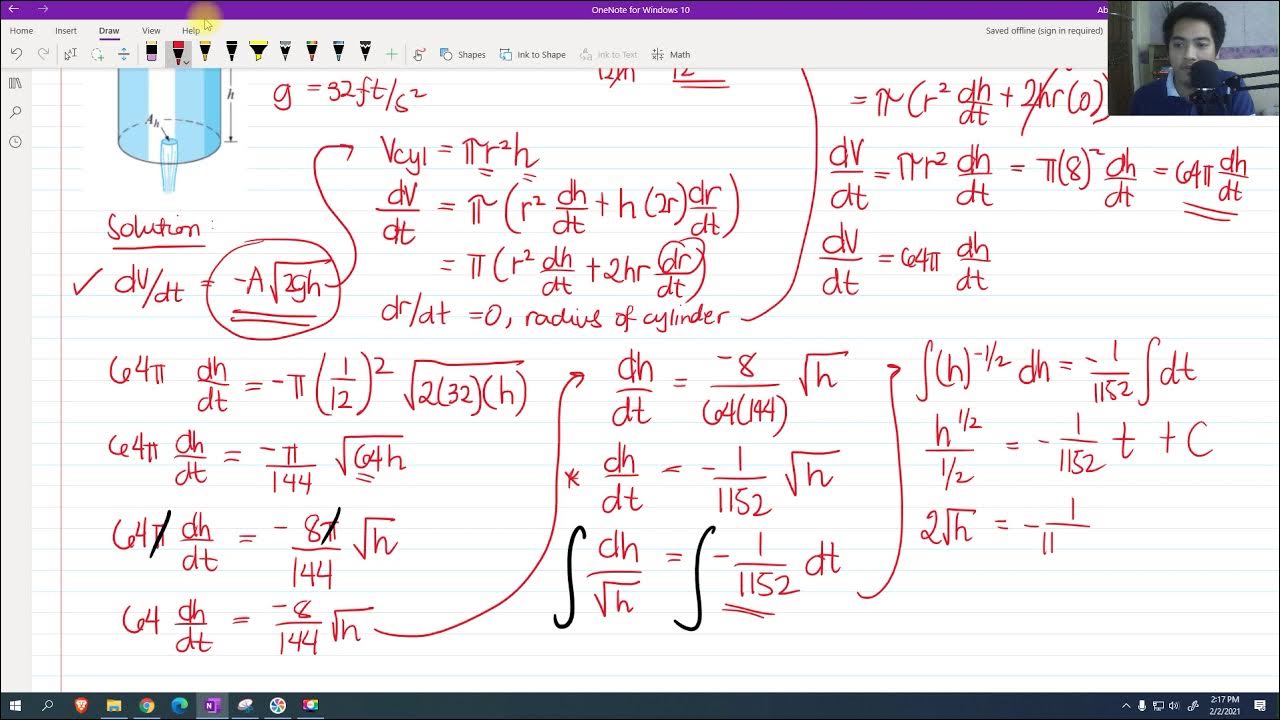 OneNote for Windows 10
Ab
Home Insert Draw View Help
Saved offline (sign in required)
Shapes Ink to Shape Ink to Text Math
h
A_h
g = 32ft/s²
12in 12
= π(r² dh/dt + 2hr(0))
Vcyl = πr²h
dV/dt = π(r² dh/dt + h(2r) dr/dt)
= π(r² dh/dt + 2hr dr/dt)
dr/dt = 0, radius of cylinder
dV/dt = πr² dh/dt = π(8)² dh/dt = 64π dh/dt
dV/dt = 64π dh/dt
Solution:
✓ dV/dt = -A√2gh
64π dh/dt = -π(1/12)² √2(32)(h)
64π dh/dt = -π/144 √64h
64π dh/dt = -8π/144 √h
64 dh/dt = -8/144 √h
dh/dt = -8/64(144) √h
* dh/dt = -1/1152 √h
∫ dh/√h = ∫ -1/1152 dt
∫(h)^-1/2 dh = -1/1152 ∫dt
h^1/2 / 1/2 = -1/1152 t + C
2√h = -1/11
2:17 PM
2/2/2021